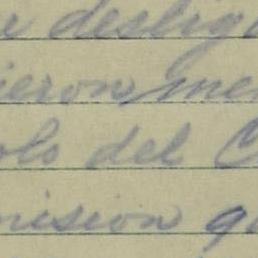 e deslig
ieron me
olo del C
mision q